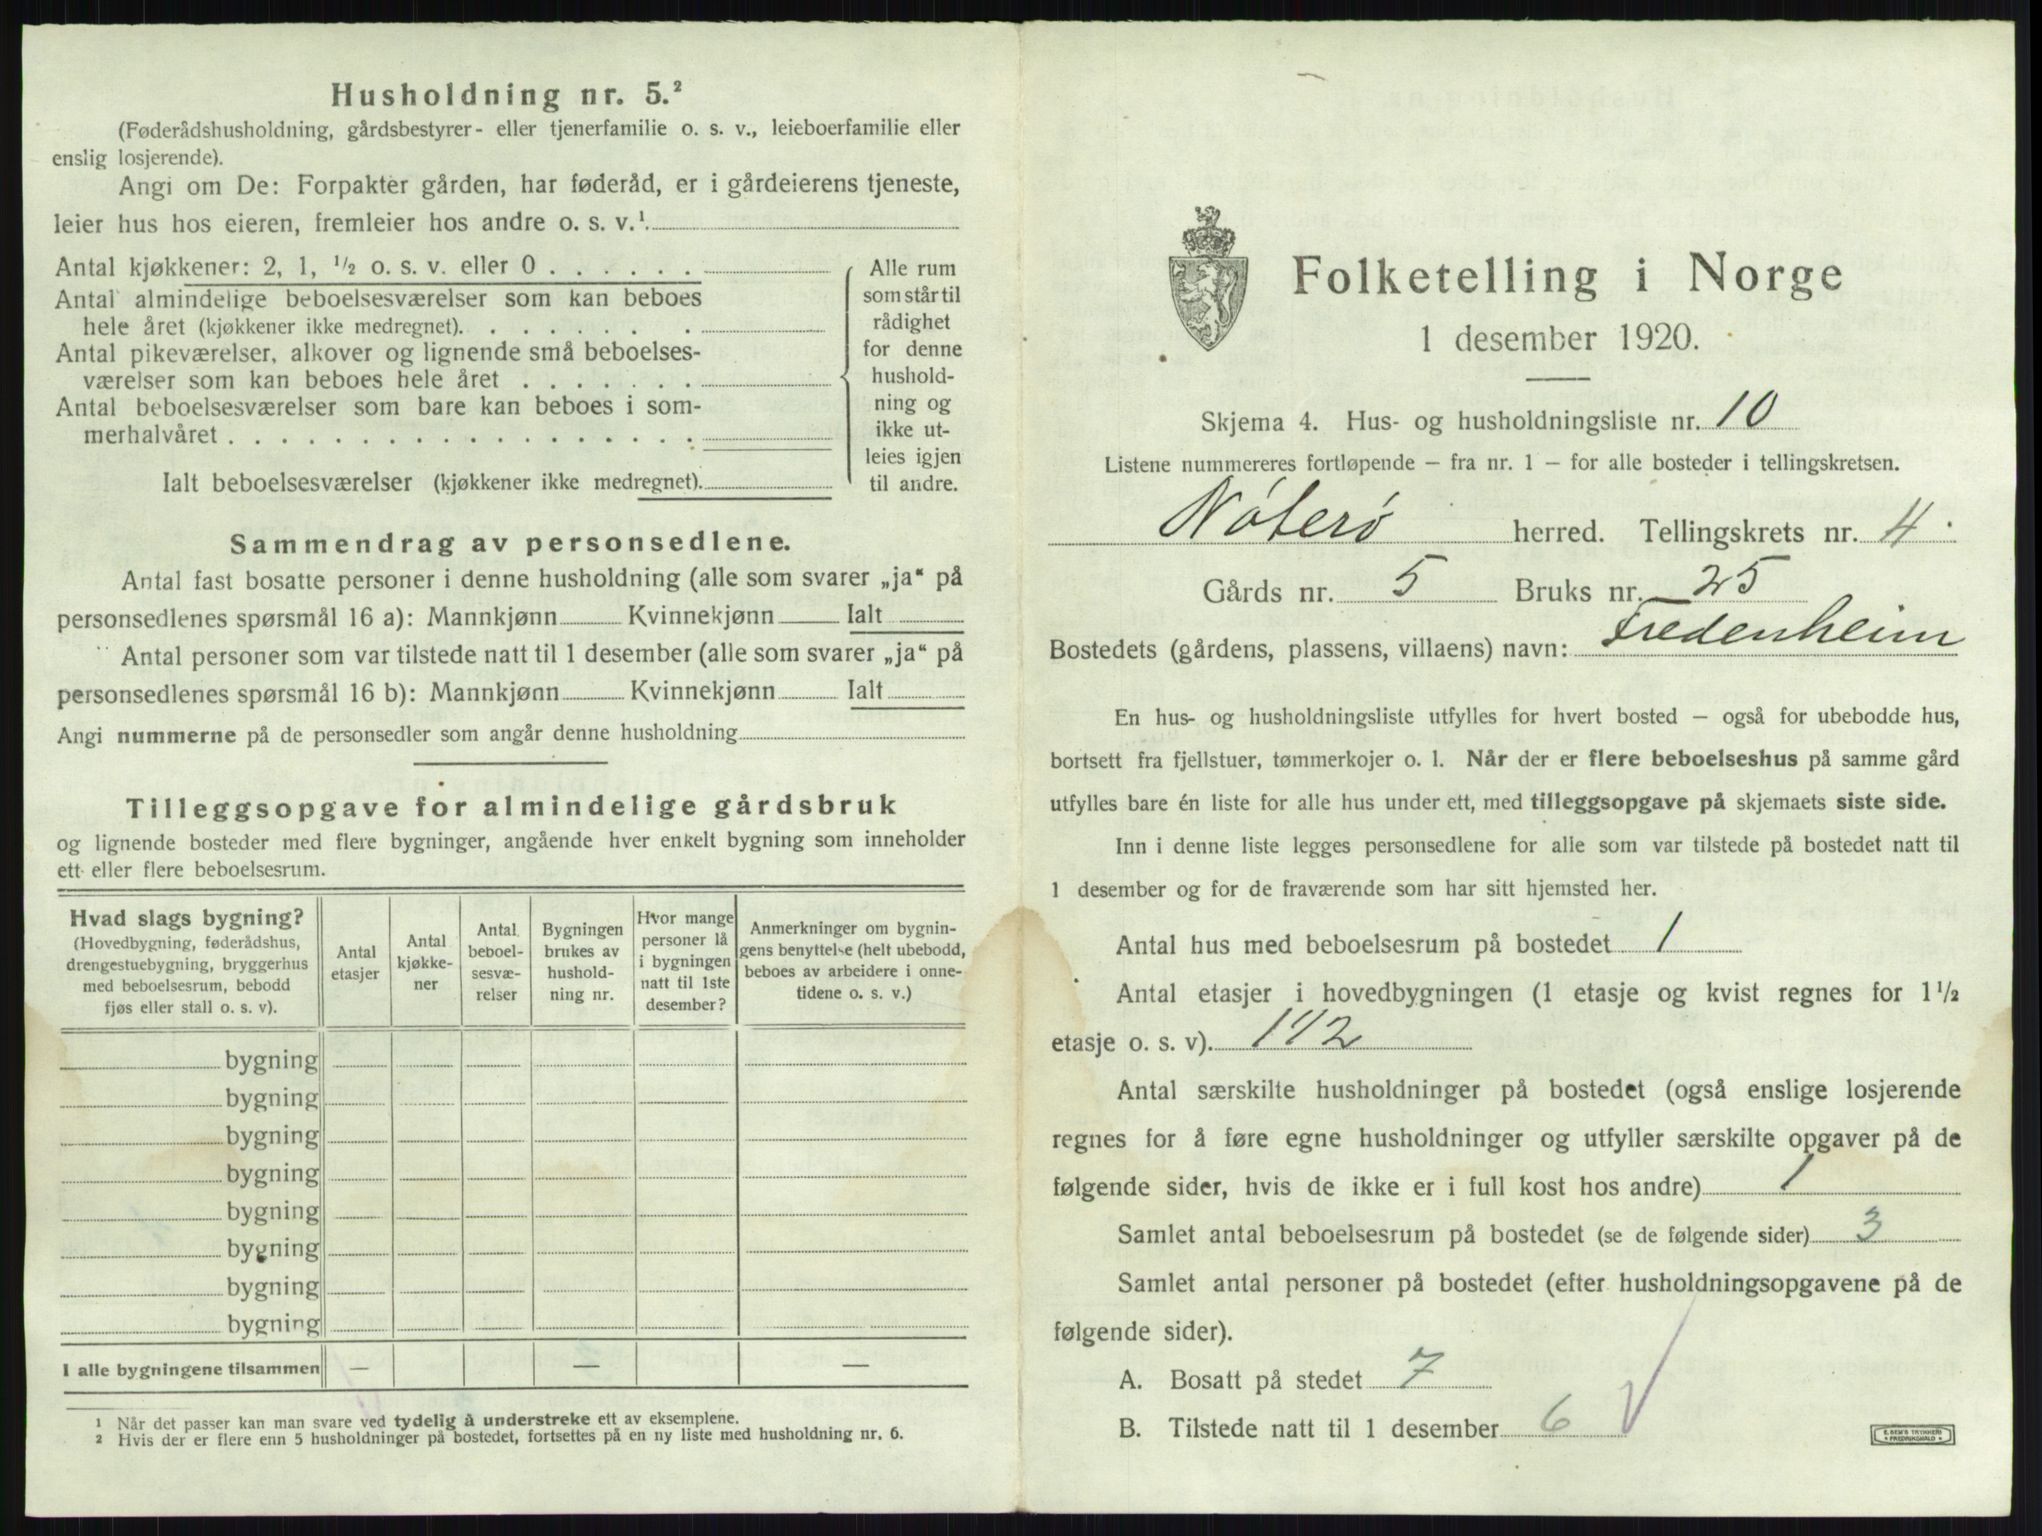 Husholdning nr. 5.²
(Føderådshusholdning, gårdsbestyrer- eller tjenerfamilie o. s. v., leieboerfamilie eller
enslig losjerende).
Angi om De: Forpakter gården, har føderåd, er i gårdeierens tjeneste,
leier hus hos eieren, fremleier hos andre o. s. v.¹
Antal kjøkkener: 2, 1, ½ o. s. v. eller 0 . . . . . .
Antal almindelige beboelsesværelser som kan beboes
hele året (kjøkkener ikke medregnet). . . . . . . .
Antal pikeværelser, alkover og lignende små beboelses-
værelser som kan beboes hele året . . . . . . .
Antal beboelsesværelser som bare kan beboes i som-
merhalvåret . . . . . . . . . . . . . . . . . .
Ialt beboelsesværelser (kjøkkener ikke medregnet).
Alle rum
som står til
rådighet
for denne
hushold-
ning og
ikke ut-
leies igjen
til andre.
Sammendrag av personsedlene.
Antal fast bosatte personer i denne husholdning (alle som svarer „ja“ på
personsedlenes spørsmål 16 a): Mannkjønn Kvinnekjønn Ialt
Antal personer som var tilstede natt til 1 desember (alle som svarer „ja“ på
personsedlenes spørsmål 16 b): Mannkjønn Kvinnekjønn Ialt
Angi nummerne på de personsedler som angår denne husholdning
Tilleggsopgave for almindelige gårdsbruk
og lignende bosteder med flere bygninger, angående hver enkelt bygning som inneholder
ett eller flere beboelsesrum.
Hvad slags bygning?
(Hovedbygning, føderådshus,
drengestuebygning, bryggerhus
med beboelsesrum, bebodd
fjøs eller stall o. s. v).
Antal
etasjer
Antal
kjøkke-
ner
Antal
beboel-
sesvæ-
relser
Bygningen
brukes av
hushold-
ning nr.
Hvor mange
personer lå
i bygningen
natt til 1ste
desember?
Anmerkninger om bygnin-
gens benyttelse (helt ubebodd,
beboes av arbeidere i onne-
tidene o. s. v.)
bygning
bygning
bygning
bygning
bygning
bygning
bygning
bygning
I alle bygningene tilsammen — — —
¹ Når det passer kan man svare ved tydelig å understreke ett av eksemplene.
² Hvis der er flere enn 5 husholdninger på bostedet, fortsettes på en ny liste med husholdning nr. 6.
Folketelling i Norge
1 desember 1920.
Skjema 4. Hus- og husholdningsliste nr. 10
Listene nummereres fortløpende – fra nr. 1 – for alle bosteder i tellingskretsen.
Nøterø herred. Tellingskrets nr. 4.
Gårds nr. 5 Bruks nr. 25
Bostedets (gårdens, plassens, villaens) navn: Fredenheim
En hus- og husholdningsliste utfylles for hvert bosted – også for ubebodde hus,
bortsett fra fjellstuer, tømmerkojer o. l. Når der er flere beboelseshus på samme gård
utfylles bare én liste for alle hus under ett, med tilleggsopgave på skjemaets siste side.
Inn i denne liste legges personsedlene for alle som var tilstede på bostedet natt til
1 desember og for de fraværende som har sitt hjemsted her.
Antal hus med beboelsesrum på bostedet 1
Antal etasjer i hovedbygningen (1 etasje og kvist regnes for 1½
etasje o. s. v). 1 1/2
Antal særskilte husholdninger på bostedet (også enslige losjerende
regnes for å føre egne husholdninger og utfyller særskilte opgaver på de
følgende sider, hvis de ikke er i full kost hos andre) 1
Samlet antal beboelsesrum på bostedet (se de følgende sider) 3
Samlet antal personer på bostedet (efter husholdningsopgavene på de
følgende sider).
A. Bosatt på stedet 7
B. Tilstede natt til 1 desember 6
E. SEM'S TRYKKERI
FREDRIKSHALD